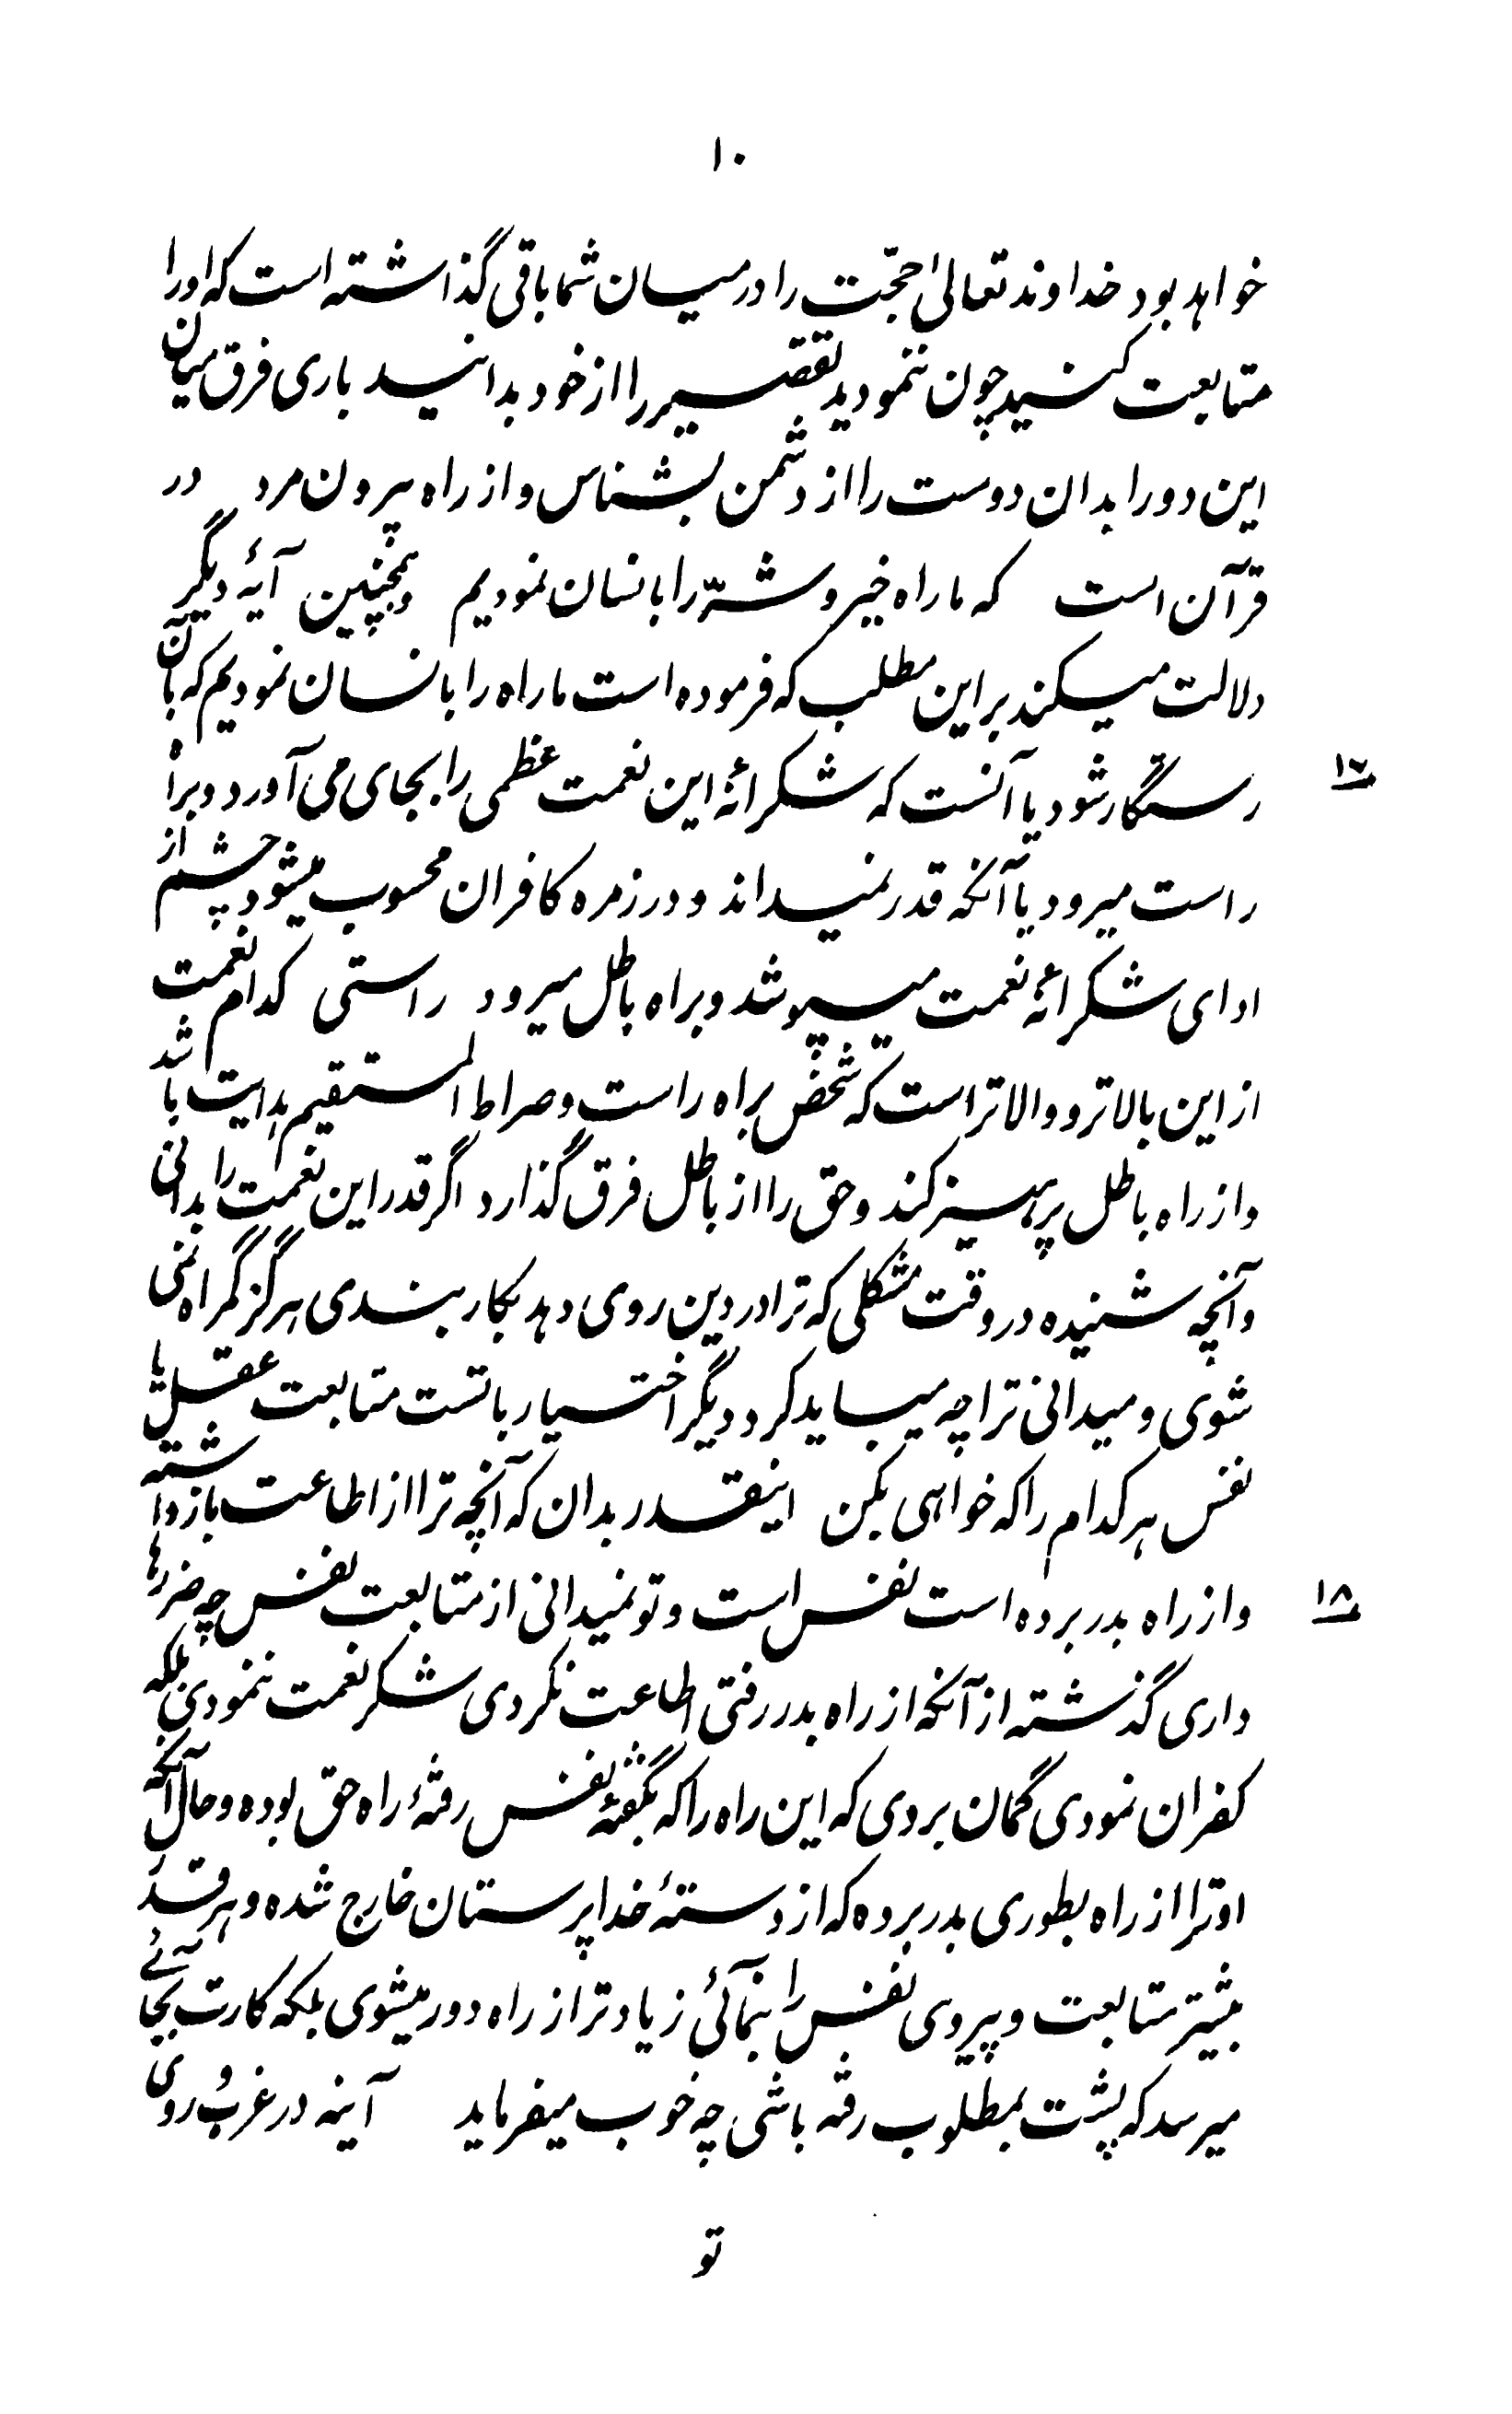 ۱۰
خواهد بود خداوند تعالیٰ حجّت را در میان شما باقی گذاشته است که او را
متابعت کنید چون ننمودید تقصیر را از خود بدانید باری فرق میان
این دو را بدان دوست را از دشمن بشناس و از راه بیرون مرو در
قرآن است که ما راه خیر و شرّ را بانسان نمودیم و همچنین آیهٔ دیگر
دلالت میکند بر این مطلب که فرموده است ما راه را بانسان نمودیم که بآن
رستگار شود یا آنست که شکرانهٔ این نعمت عظمی را بجای می آورد و براه
۱۷
راست میرود یا آنکه قدر نمیداند و در زمره کافران محسوب میشود چشم از
ادای شکرانهٔ نعمت میپوشد و براه باطل میرود راستی کدام نعمت
از این بالاتر و والاتر است که شخص براه راست و صراط المستقیم هدایت باشد
و از راه باطل پرهیز کند و حق را از باطل فرق گذارد اگر قدر این نعمت را بدانی
و آنچه شنیده در وقت مشکلی که ترا در دین روی دهد بکار بندی هرگز گمراه نمی
شوی و میدانی ترا چه میباید کرد دیگر اختیار با تست متابعت عقل یا
نفس هر کدام را که خواهی بکن اینقدر بدان که آنچه ترا از اطاعت باز داشته
و از راه بدر برده است نفس است و تو نمیدانی از متابعت نفس چه ضررها
۱۸
داری گذشته از آنکه از راه بدر رفتی اطاعت نکردی شکر نعمت ننمودی بلکه
کفران نمودی گمان بردی که این راه را که بگفتهٔ نفس رفتهٔ راه حق بوده و حال آنکه
او ترا از راه بطوری بدر برده که از دستهٔ خدا پرستان خارج شده و هر قدر
بیشتر متابعت و پیروی نفس را بنمائی زیادتر از راه دور میشوی بلکه کارت بجائی
میرسد که پشت بمطلوب رفته باشی چه خوب میفرماید آینه در غرب و روی
تو